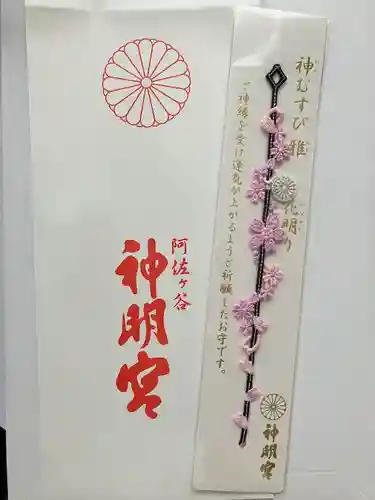 阿佐ヶ谷
神明宮
神むすび 雅
花明り
ご神縁を受け運気が上がるようご祈願したお守です。
神明宮